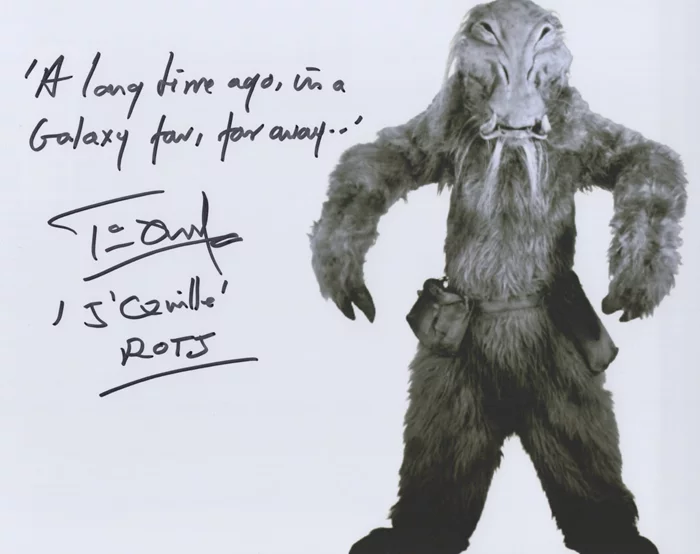 'A long time ago, in a
Galaxy far, far away..'
'J'Quille'
ROTJ